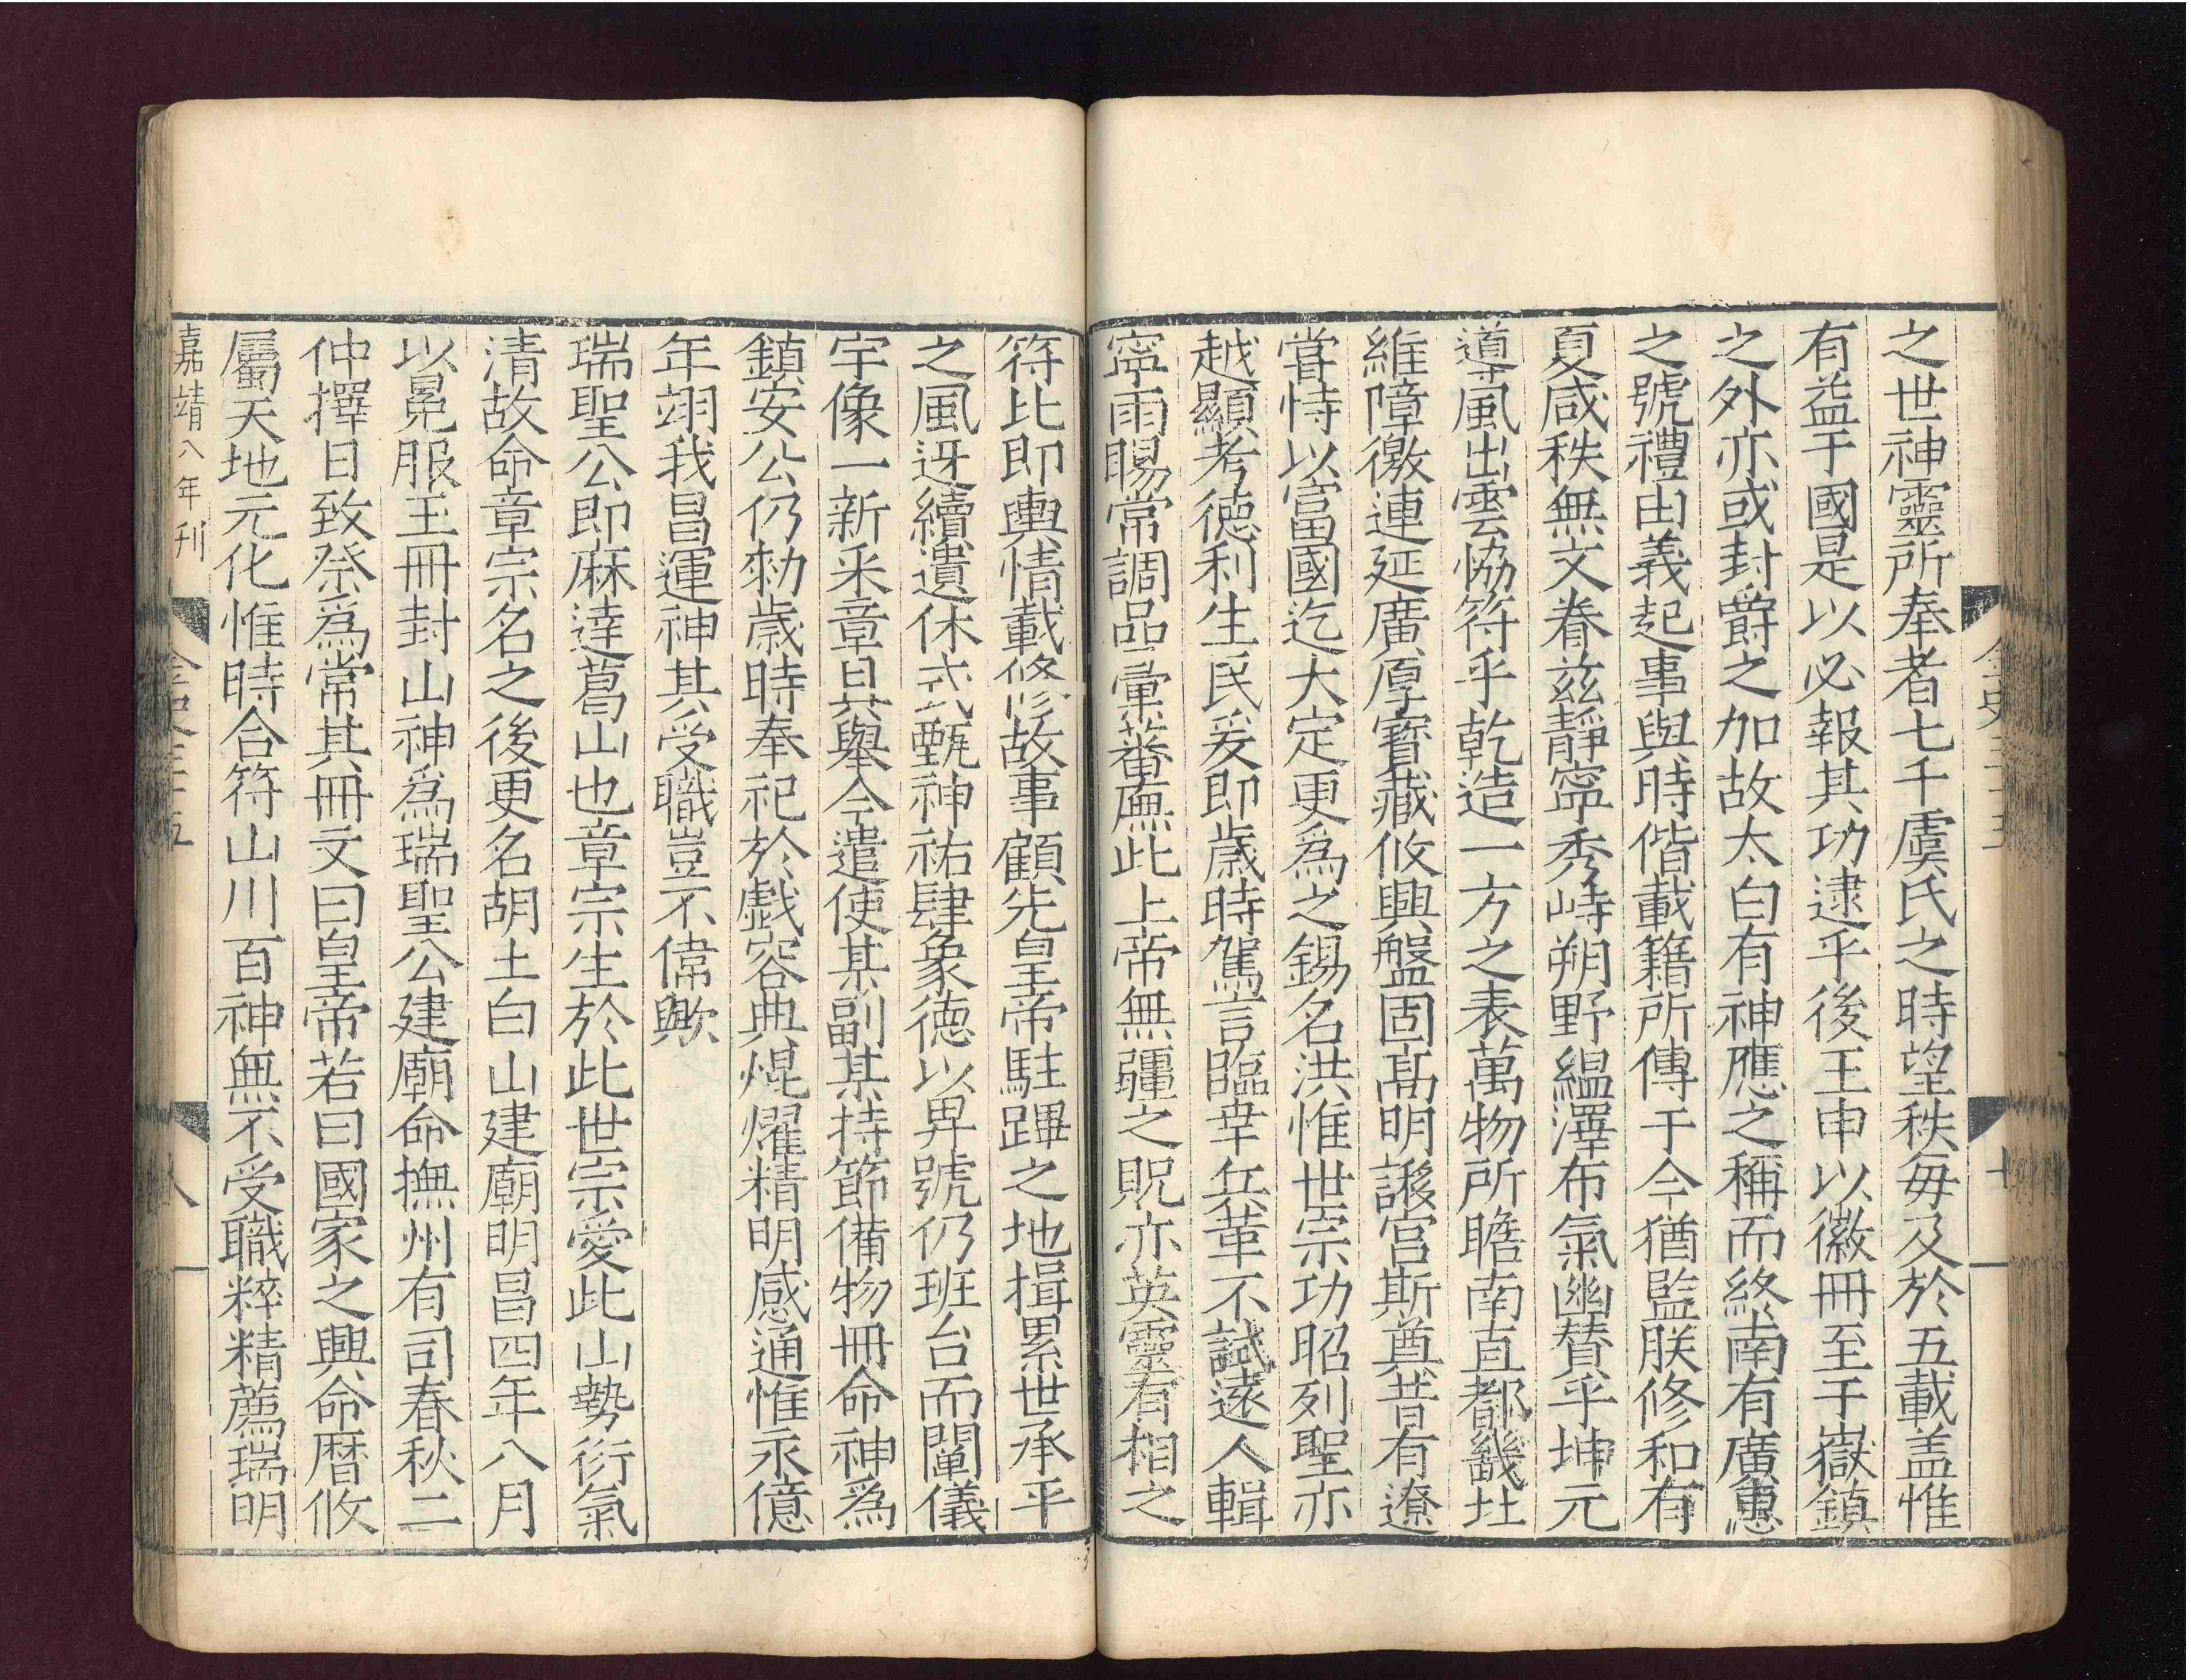 之世神靈所奉者七千虞氏之時望秩每及於五載盖惟
有益于國是以必報其功逮乎後王申以徽冊至于嶽鎮
之外亦或封爵之加故太白有神應之稱而終南有廣惠
之號禮由義起事與時偕載籍所傳于今猶監朕修和有
夏咸秩無文眷兹靜寧秀峙朔野緼澤布氣幽賛乎坤元
導風出雲協符乎乾造一方之表萬物所瞻南直都畿北
維障徼連延廣厚寳藏攸興盤固髙明譺宫斯奠昔有遼
嘗恃以富國迄大定更爲之錫名洪惟世宗功昭列聖亦
越顯考德利生民爰即歲時駕言臨幸兵革不試遠人輯
寧雨暘常調品彚蕃廡此上帝無疆之貺亦英靈有相之
符比即輿情載修故事顧先皇帝駐蹕之地揖累世承平
之風迓續遺休式甄神祐肆象德以畀號仍班台而闡儀
宇像一新采章具舉今遣使某副某持節備物冊命神爲
鎮安公仍勑歲時奉祀於戯容典焜燿精明感通惟永億
年翊我昌運神其受職豈不偉歟
瑞聖公即麻達葛山也章宗生於此世宗愛此山勢衍氣
清故命章宗名之後更名胡土白山建廟明昌四年八月
以冕服玉冊封山神爲瑞聖公建廟命撫州有司春秋二
仲擇日致祭爲常其冊文曰皇帝若曰國家之興命曆攸
屬天地元化惟時合符山川百神無不受職粹精薦瑞明
嘉靖八年刊
金史三十五
八